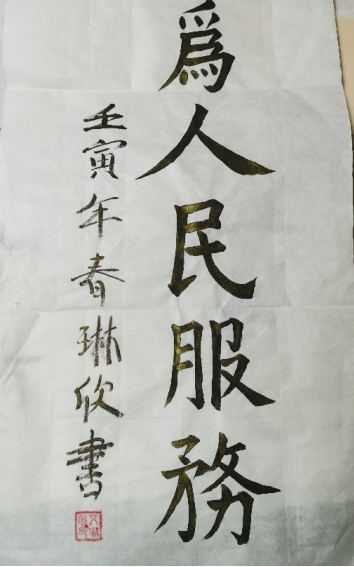 爲人民服務
壬寅年春琳欣書